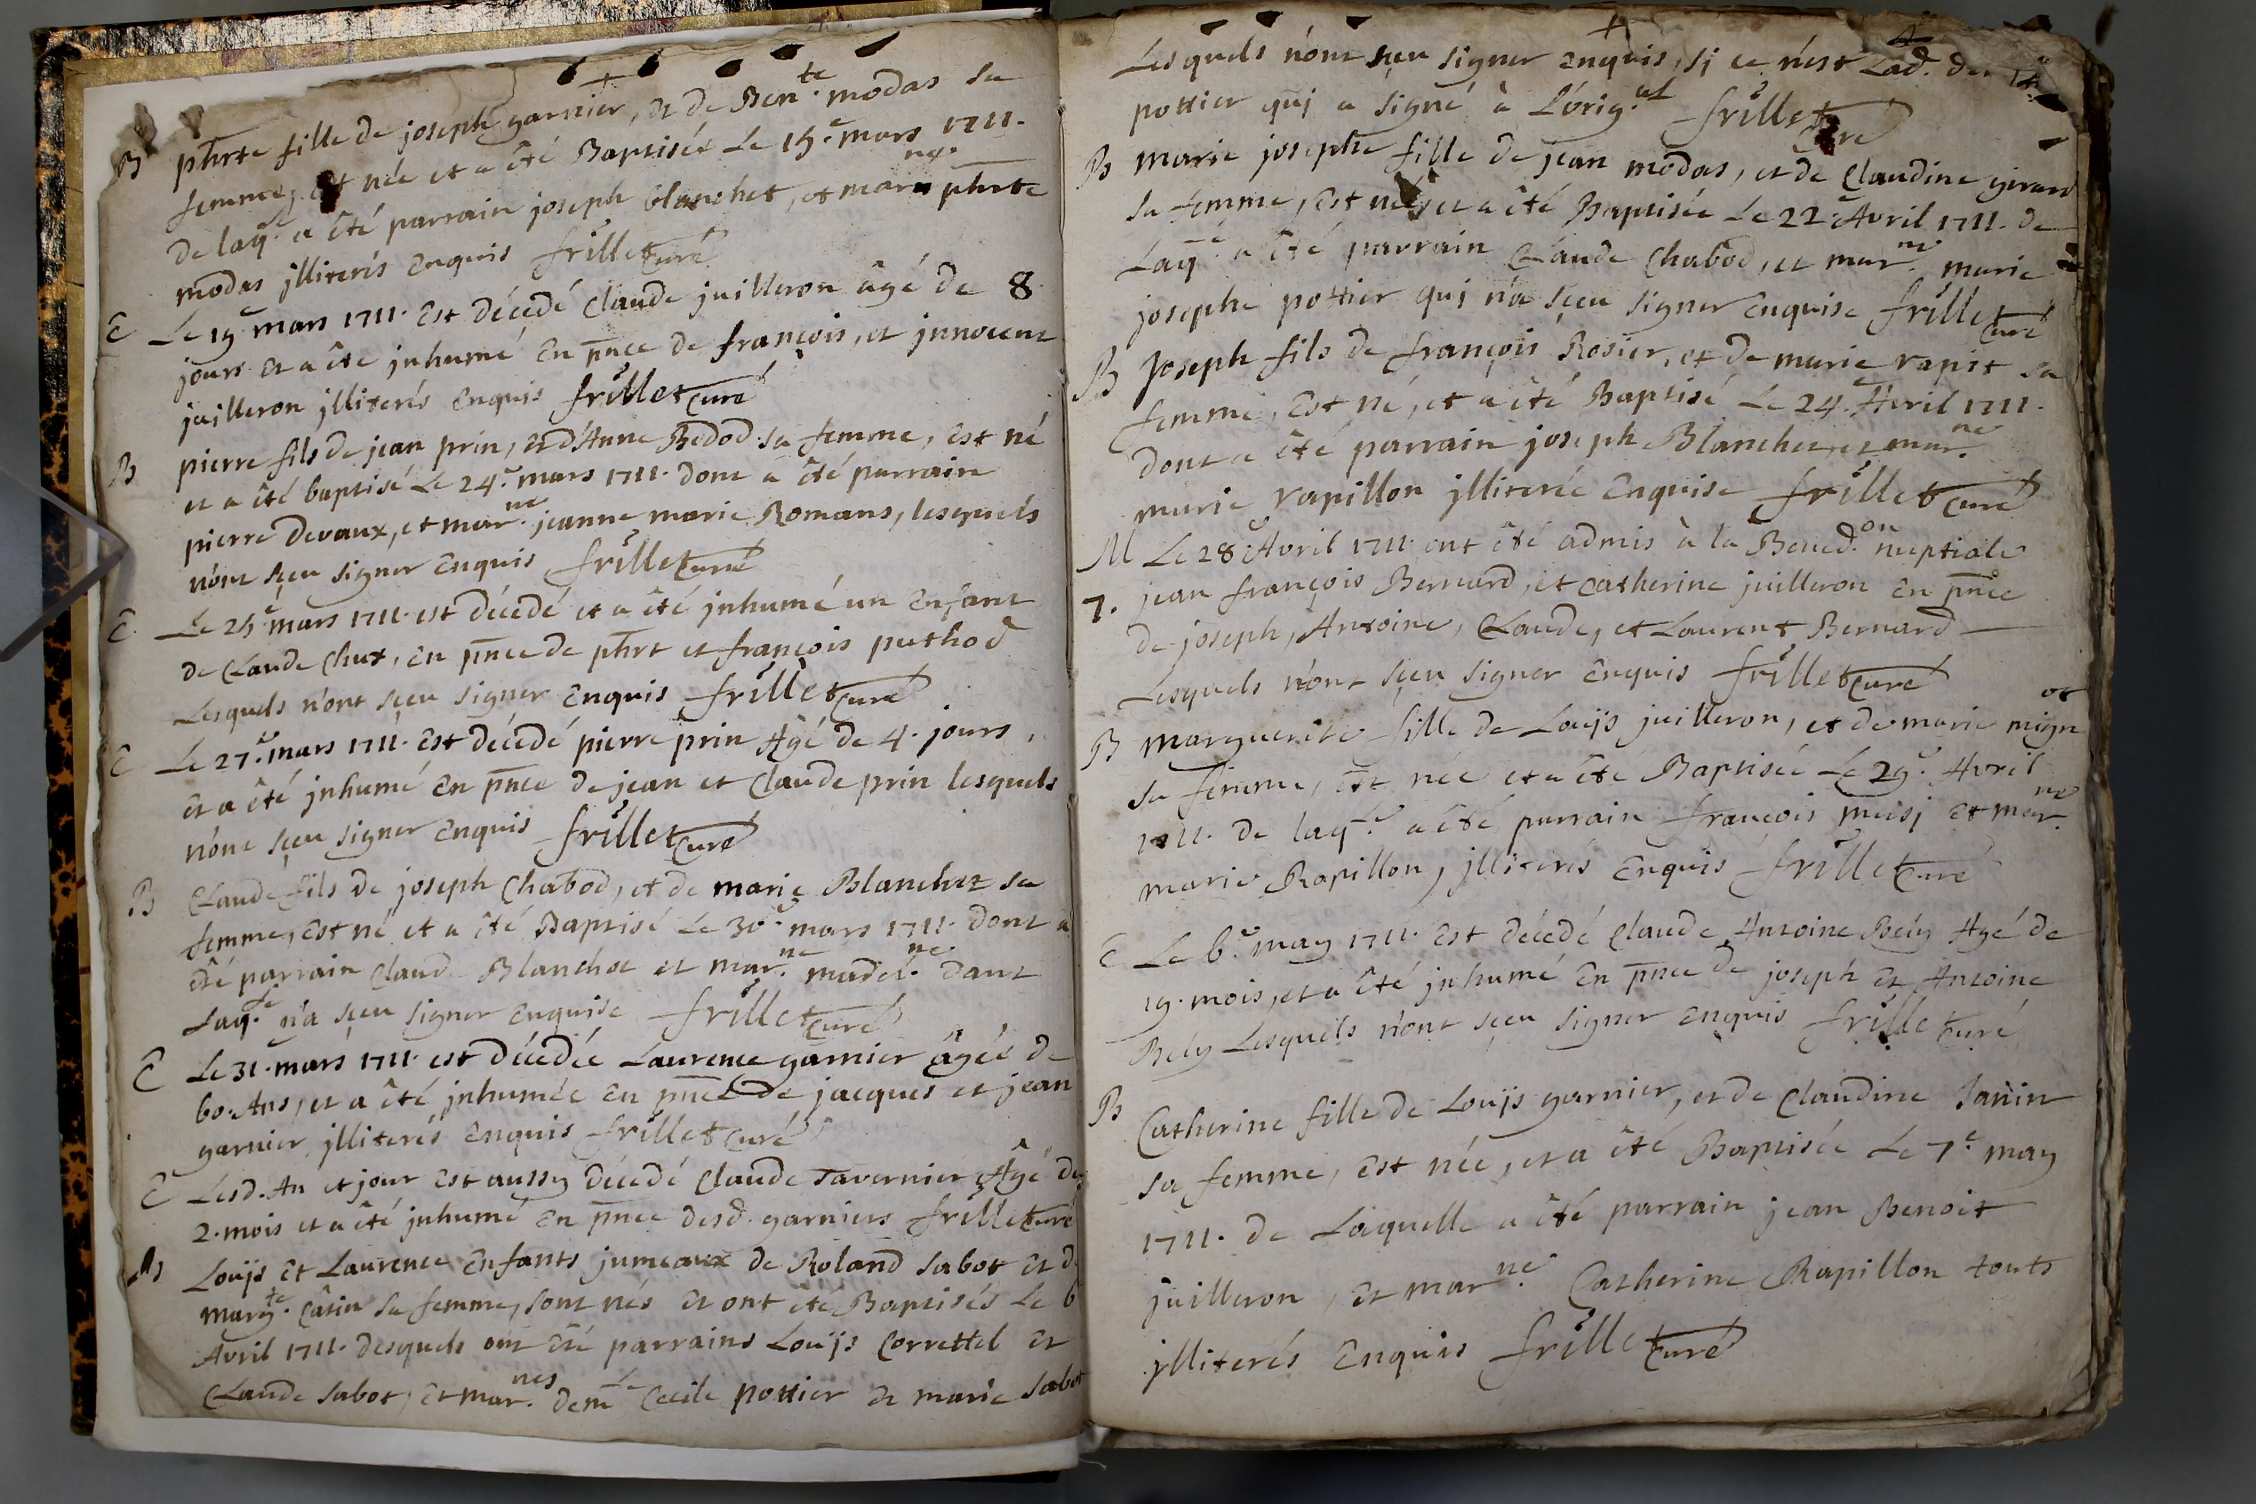 B phrte fille de joseph garnier, et de Ben.te modas sa
femme, est née et a êté Baptisée Le 15.e mars 1711.
de laq.le a êté parrain joseph blanchet, et mar.ne phrte
modas jlliterés enquis frillet Curé
E Le 19.e mars 1711. est décedé Claude juilleron âgé de 8
jours et a êté jnhumé en pnce de françois, et jnnocent
juilleron jlliterés enquis frillet Curé
B pierre fils de jean prin, et d'Anne Bedod sa femme, est né
et a êté baptisé Le 24.e mars 1711. dont a êté parrain
pierre Devaux, et mar.ne jeanne marie Romans, lesquels
n'ont sçeu signer enquis frillet Curé
E. Le 25.e mars 1711. est décedé et a êté jnhumé un enfant
de Claude Chux, en pnce de phrt et françois puthod
Lesquels n'ont sçeu signer enquis frillet Curé
E Le 27.e mars 1711. est décedé pierre prin Agé de 4. jours,
et a êté jnhumé en pnce de jean et Claude prin lesquels
n'ont sçeu signer enquis frillet Curé
B Claude fils de joseph Chabod, et de marie Blanchet sa
femme, est né et a êté Baptisé Le 30.e mars 1711. dont a
êté parrain Claude Blanchet et mar.ne madel.ne Dant
Laq.le n'a sçeu signer enquise frillet Curé
E Le 31. mars 1711. est décedée Laurence garnier âgée de
60. Ans, et a êté jnhumée en pnce de jacques et jean
garnier jlliterés enquis frillet Curé
E Lesd. An et jour est aussy décedé Claude Tavernier Âgé de
2. mois et a êté jnhumé en pnce desd. garniers frillet Curé
Bs Louis et Laurence enfants jumeaux de Roland Sabot et de
Marg.te Câtin sa femme, sont nés et ont êté Baptisés Le 6
Avril 1711. desquels ont êté parrains Louis Correttel et
Claude Sabot, et mar.nes dem.lle Cecile pottier et marie Sabot
Lesquels n'ont sçeu signer enquis, si ce n'est Lad. de.lle
pottier qui a signé à L'orig.al frillet Curé
B marie josephe fille de jean modas, et de Claudine girard
sa femme, est née et a êté Baptisée Le 22.e Avril 1711. de
Laq.le a êté parrain Claude Chabod, et mar.ne marie
josephe pottier qui n'a sçeu signer enquise frillet Curé
B Joseph fils de françois Rosier, et de marie rapit sa
femme, est né, et a êté Baptisé Le 24. Avril 1711.
dont a êté parrain joseph Blanchet, et mar.ne
marie rapillon jlliterée enquise frillet Curé
M Le 28.e Avril 1711. ont êté admis à la Bened.on nuptiale
7. jean françois Bernard, et Catherine juilleron en pnce
de joseph, Antoine, Claude, et Laurent Bernard
Lesquels n'ont sçeu signer enquis frillet Curé
B marguerite fille de Louis juilleron, et de marie mignot
sa femme, est née et a êté Baptisée Le 29.e Avril
1711. de laq.le a êté parrain françois muisj et mar.ne
marie Rapillon, jlliterés enquis frillet Curé
E Le 6.e may 1711. est décedé Claude Antoine Bely Agé de
19. mois, et a êté jnhumé en pnce de joseph et Antoine
Bely Lesquels n'ont sçeu signer enquis frillet Curé
B Catherine fille de Louis garnier, et de Claudine Janin
sa femme, est née, et a êté Baptisée Le 7.e may
1711. de Laquelle a êté parrain jean Benoit
juilleron, et mar.ne Catherine Rapillon touts
jlliterés enquis frillet Curé